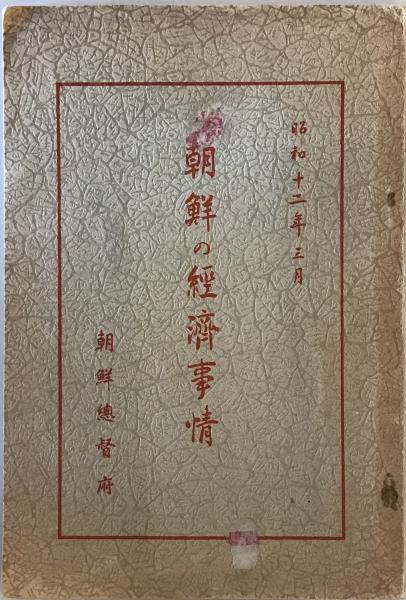 昭和十二年三月
朝鮮の經濟事情
朝鮮總督府